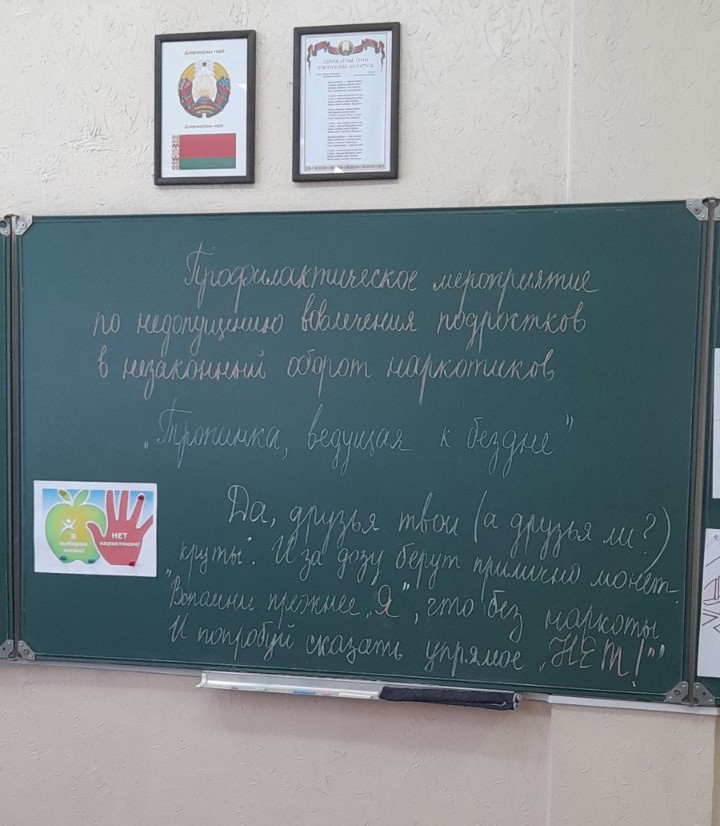 Дзяржаўны герб
Дзяржаўны сцяг
ДЗЯРЖАЎНЫ ГІМН
РЭСПУБЛІКІ БЕЛАРУСЬ
Профилактическое мероприятие
по недопущению вовлечения подростков
в незаконный оборот наркотиков
„Тропинка, ведущая к бездне"
Я
выбираю
жизнь!
НЕТ
наркотикам!
Да, друзья твои (а друзья ли?)
круты. И за дозу берут прилично монет.
"Вспомни прежнее „Я", что без наркоты
И попробуй сказать упрямое „НЕТ!""